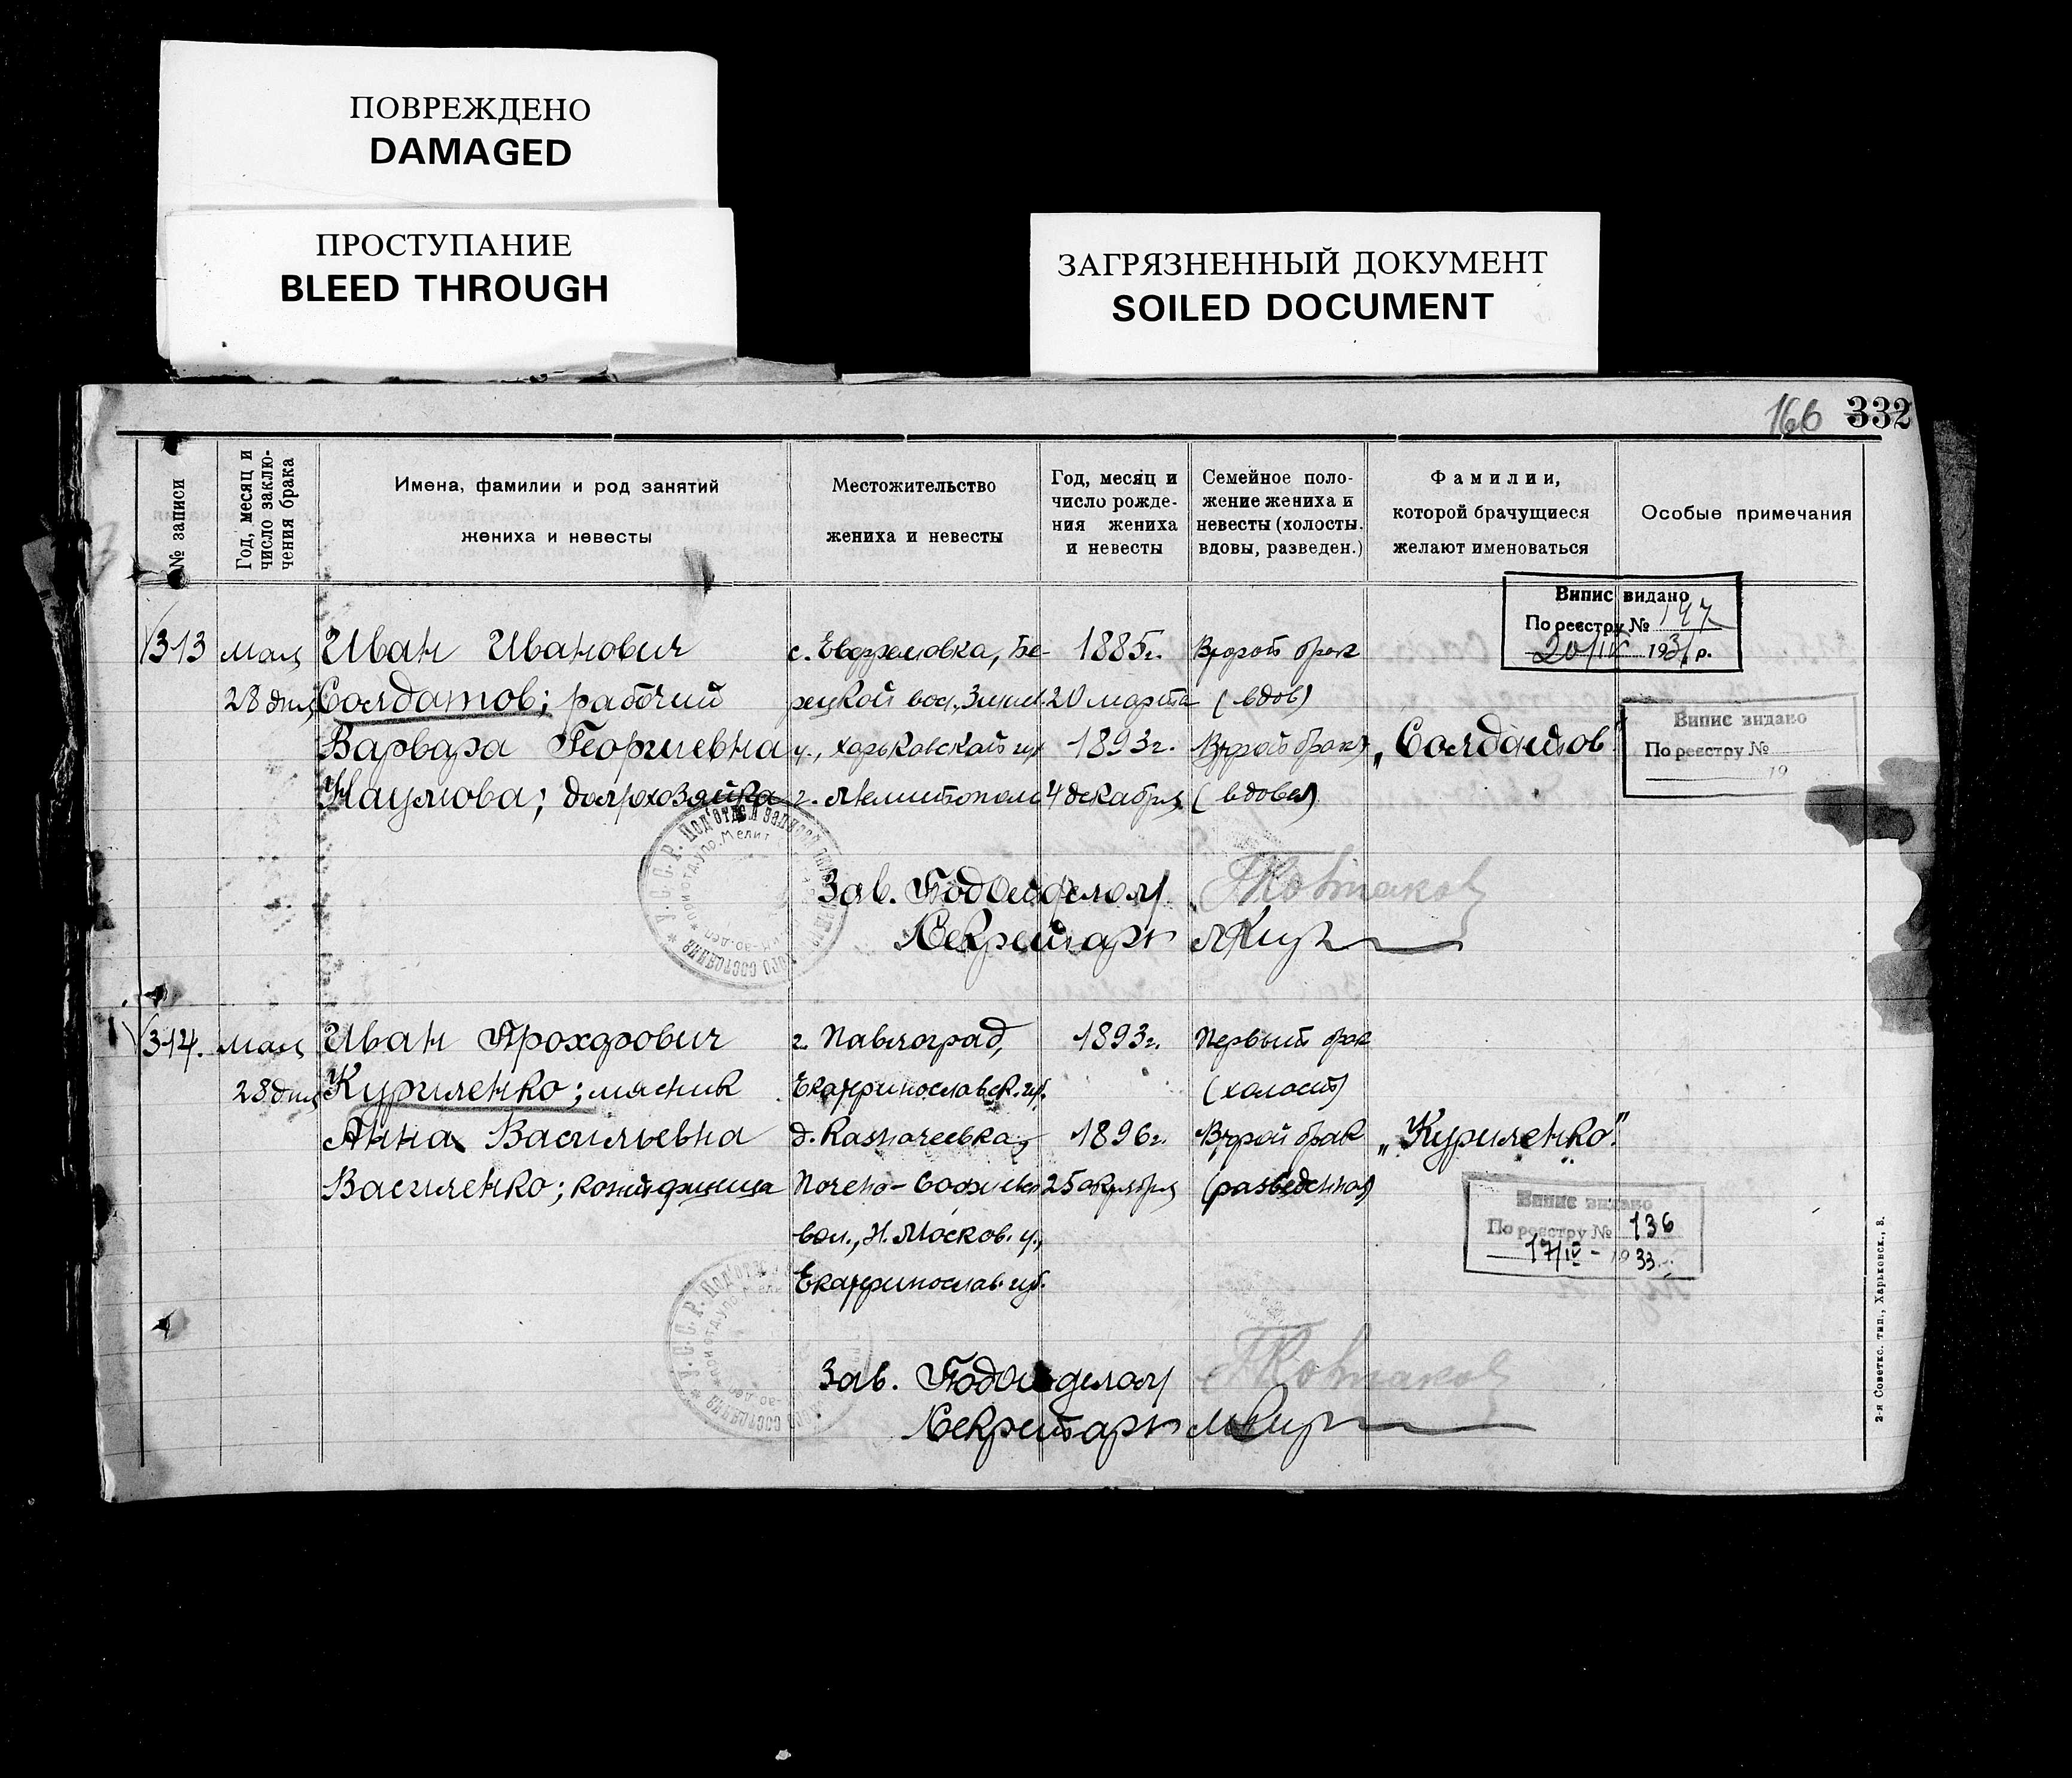 ПОВРЕЖДЕНО
DAMAGED
ПРОСТУПАНИЕ
BLEED THROUGH
ЗАГРЯЗНЕННЫЙ ДОКУМЕНТ
SOILED DOCUMENT
166 332
№ записи
Год, месяц и
число заклю-
чения брака
Имена, фамилии и род занятий
жениха и невесты
Местожительство
жениха и невесты
Год, месяц и
число рожде-
ния жениха
и невесты
Семейное поло-
жение жениха и
невесты (холосты,
вдовы, разведен.)
Фамилии,
которой брачущиеся
желают именоваться
Особые примечания
Випис видано
По реестру № 147
20/IV 1931 р.
313 мая Иван Иванович с. Евфремовка, Бе- 1885г. Второй брак
28 дня Солдатов; рабочий рецкой вол., Змиев. 20 марта (вдов)
Варвара Георгиевна у., Харьковской губ. 1893г. Второй брак „Солдатов"
Наумова; домохозяйка г. Мелитополь 4 декабря (вдова)
Випис видано
По реестру №
19
Зав. Подотделом
Секретарь
314. мая Иван Прохорович г. Павлоград, 1893г. Первый брак
28 дня Куриленко; мясник Екатеринославск. губ. (холост)
Анна Васильевна д. Казначеевка, 1896г. Второй брак „Куриленко".
Василенко; 25 октября (разведенная)
вол., Н. Москов. у.,
Екатеринослав. губ.
Випис видано
По реестру № 136
17/IV - 1933
Зав. Подотделом
Секретарь
2-я Советск. тип., Харьковск., 8.